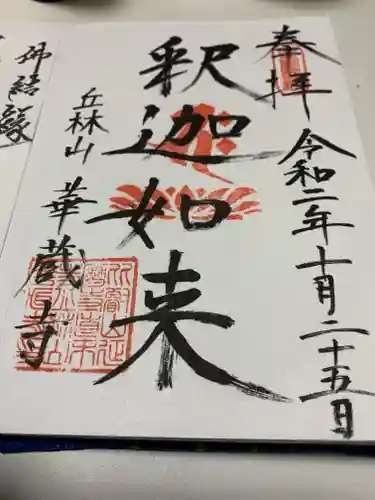 奉拝
令和二年十月二十五日
釈迦如来
丘林山
華蔵寺